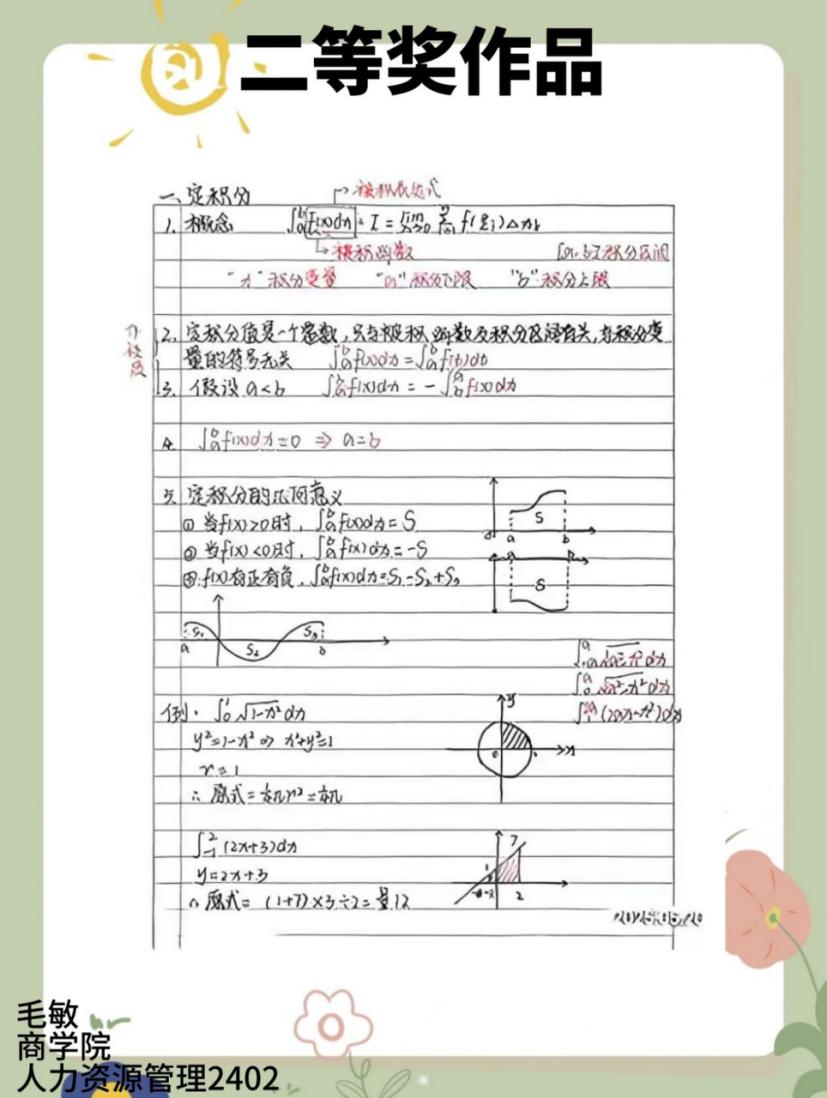 二等奖作品
一、定积分 被积表达式
1. 概念 ∫ₐᵇ f(x)dx = I = lim Σ f(ξi)Δxi
被积函数 [a,b]积分区间
"x"积分变量 "a"积分下限 "b"积分上限
2. 定积分值是一个常数,只与被积函数及积分区间有关,与积分变
量的符号无关 ∫ₐᵇf(x)dx=∫ₐᵇf(t)dt
3. 假设 a<b ∫ₐᵇf(x)dx = -∫ᵇₐf(x)dx
4. ∫ₐᵇf(x)dx=0 ⇒ a=b
5. 定积分的几何意义
① 当f(x)>0时,∫ₐᵇf(x)dx=S
② 当f(x)<0时,∫ₐᵇf(x)dx=-S
③ f(x)有正有负,∫ₐᵇf(x)dx=S₁-S₂+S₃
S
a b
S
S₁ S₂ S₃
a b
∫₋ₐᵃ √a²-x² dx
∫₀ᵃ √a²-x² dx
例. ∫₀¹ √1-x² dx
y²=1-x² ⇒ x²+y²=1
r=1
∴ 原式=¼πr²=¼π
y x
∫₋₁² (2x+3)dx
y=2x+3
∴ 原式= (1+7)×3÷2=12
7
2
毛敏
商学院
人力资源管理2402